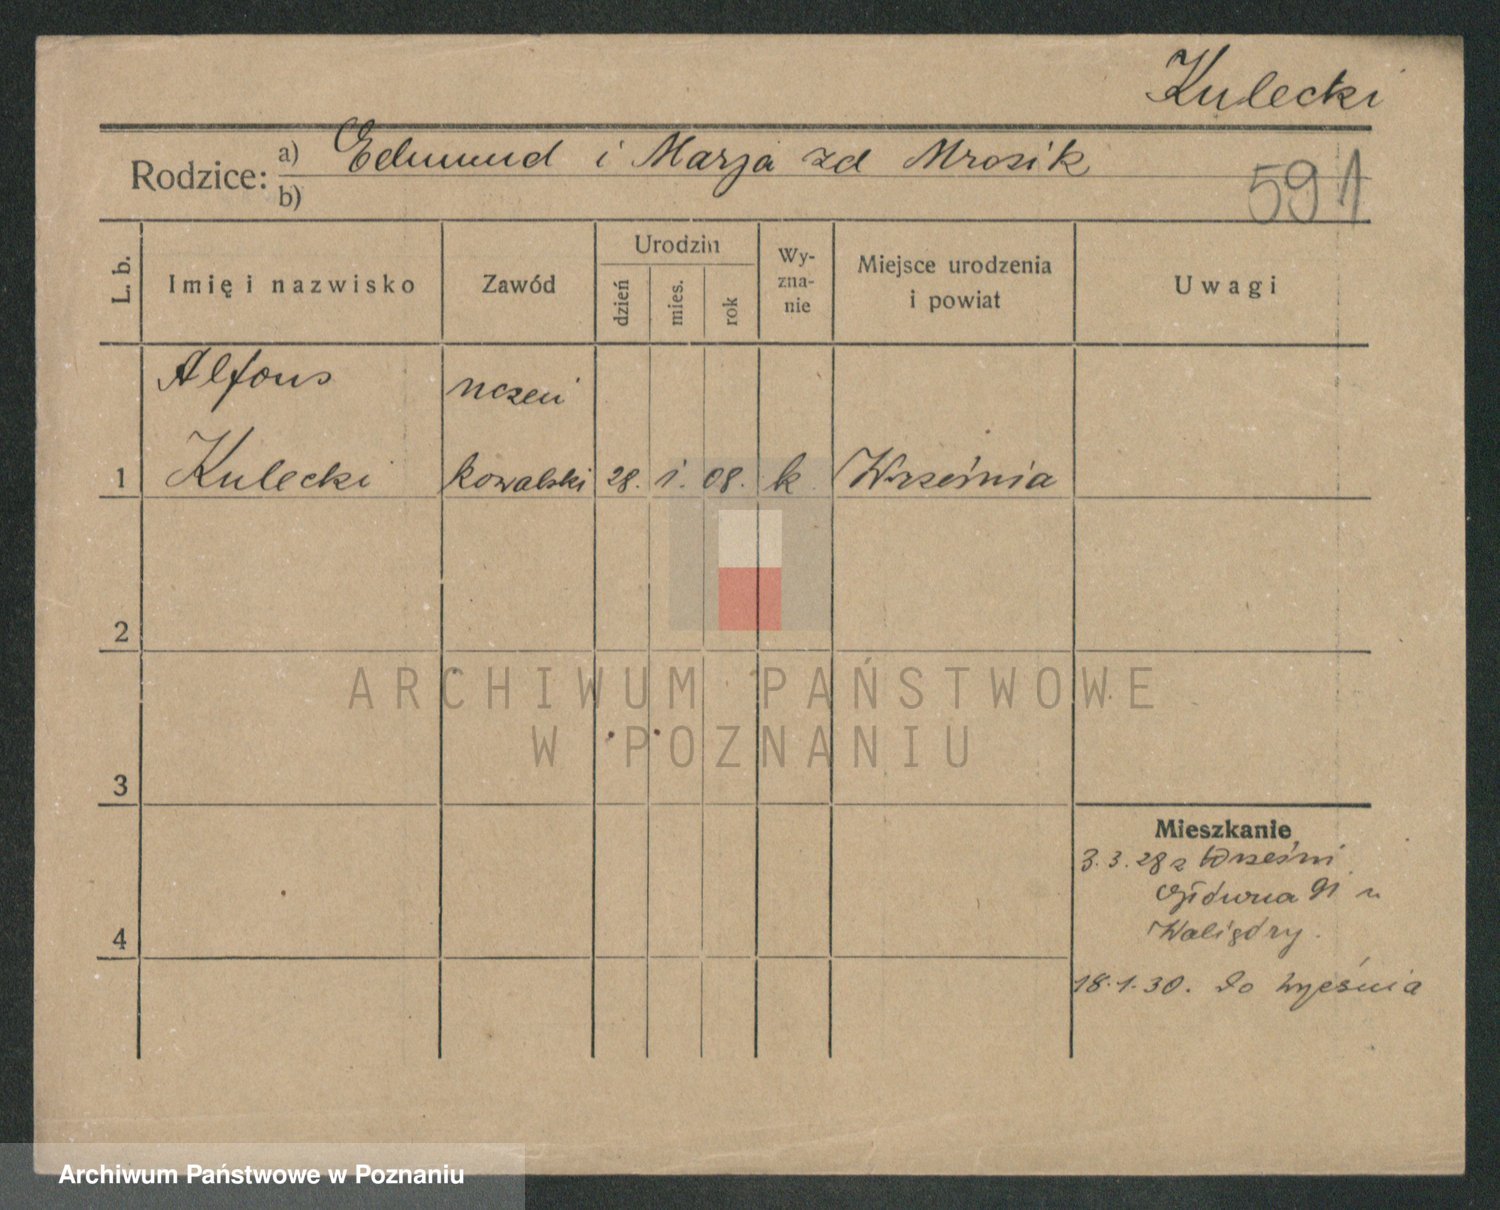 Kulecki
Rodzice: a) Edmund i Marja zd Mrosik
b)
591
L. b.
Imię i nazwisko
Zawód
Urodzin
dzień
mies.
rok
Wy-
zna-
nie
Miejsce urodzenia
i powiat
Uwagi
Alfons
uczeń
1 Kulecki kowalski 28. 1. 08. k Września
2
3
4
Mieszkanie
3.3.28 z Wrześni
Główna 91 u
Waligóry.
18.1.30. do
ARCHIWUM PAŃSTWOWE
W POZNANIU
Archiwum Państwowe w Poznaniu